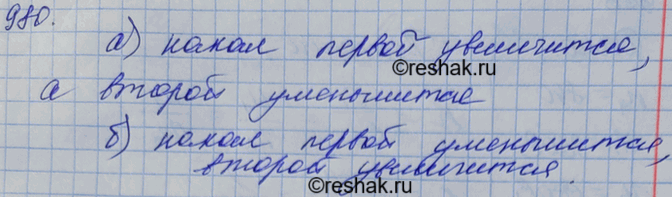 980.
а) накал первой увеличится,
©reshak.ru
а второй уменьшится
б) накал первой уменьшится,
второй увеличится.
©reshak.ru